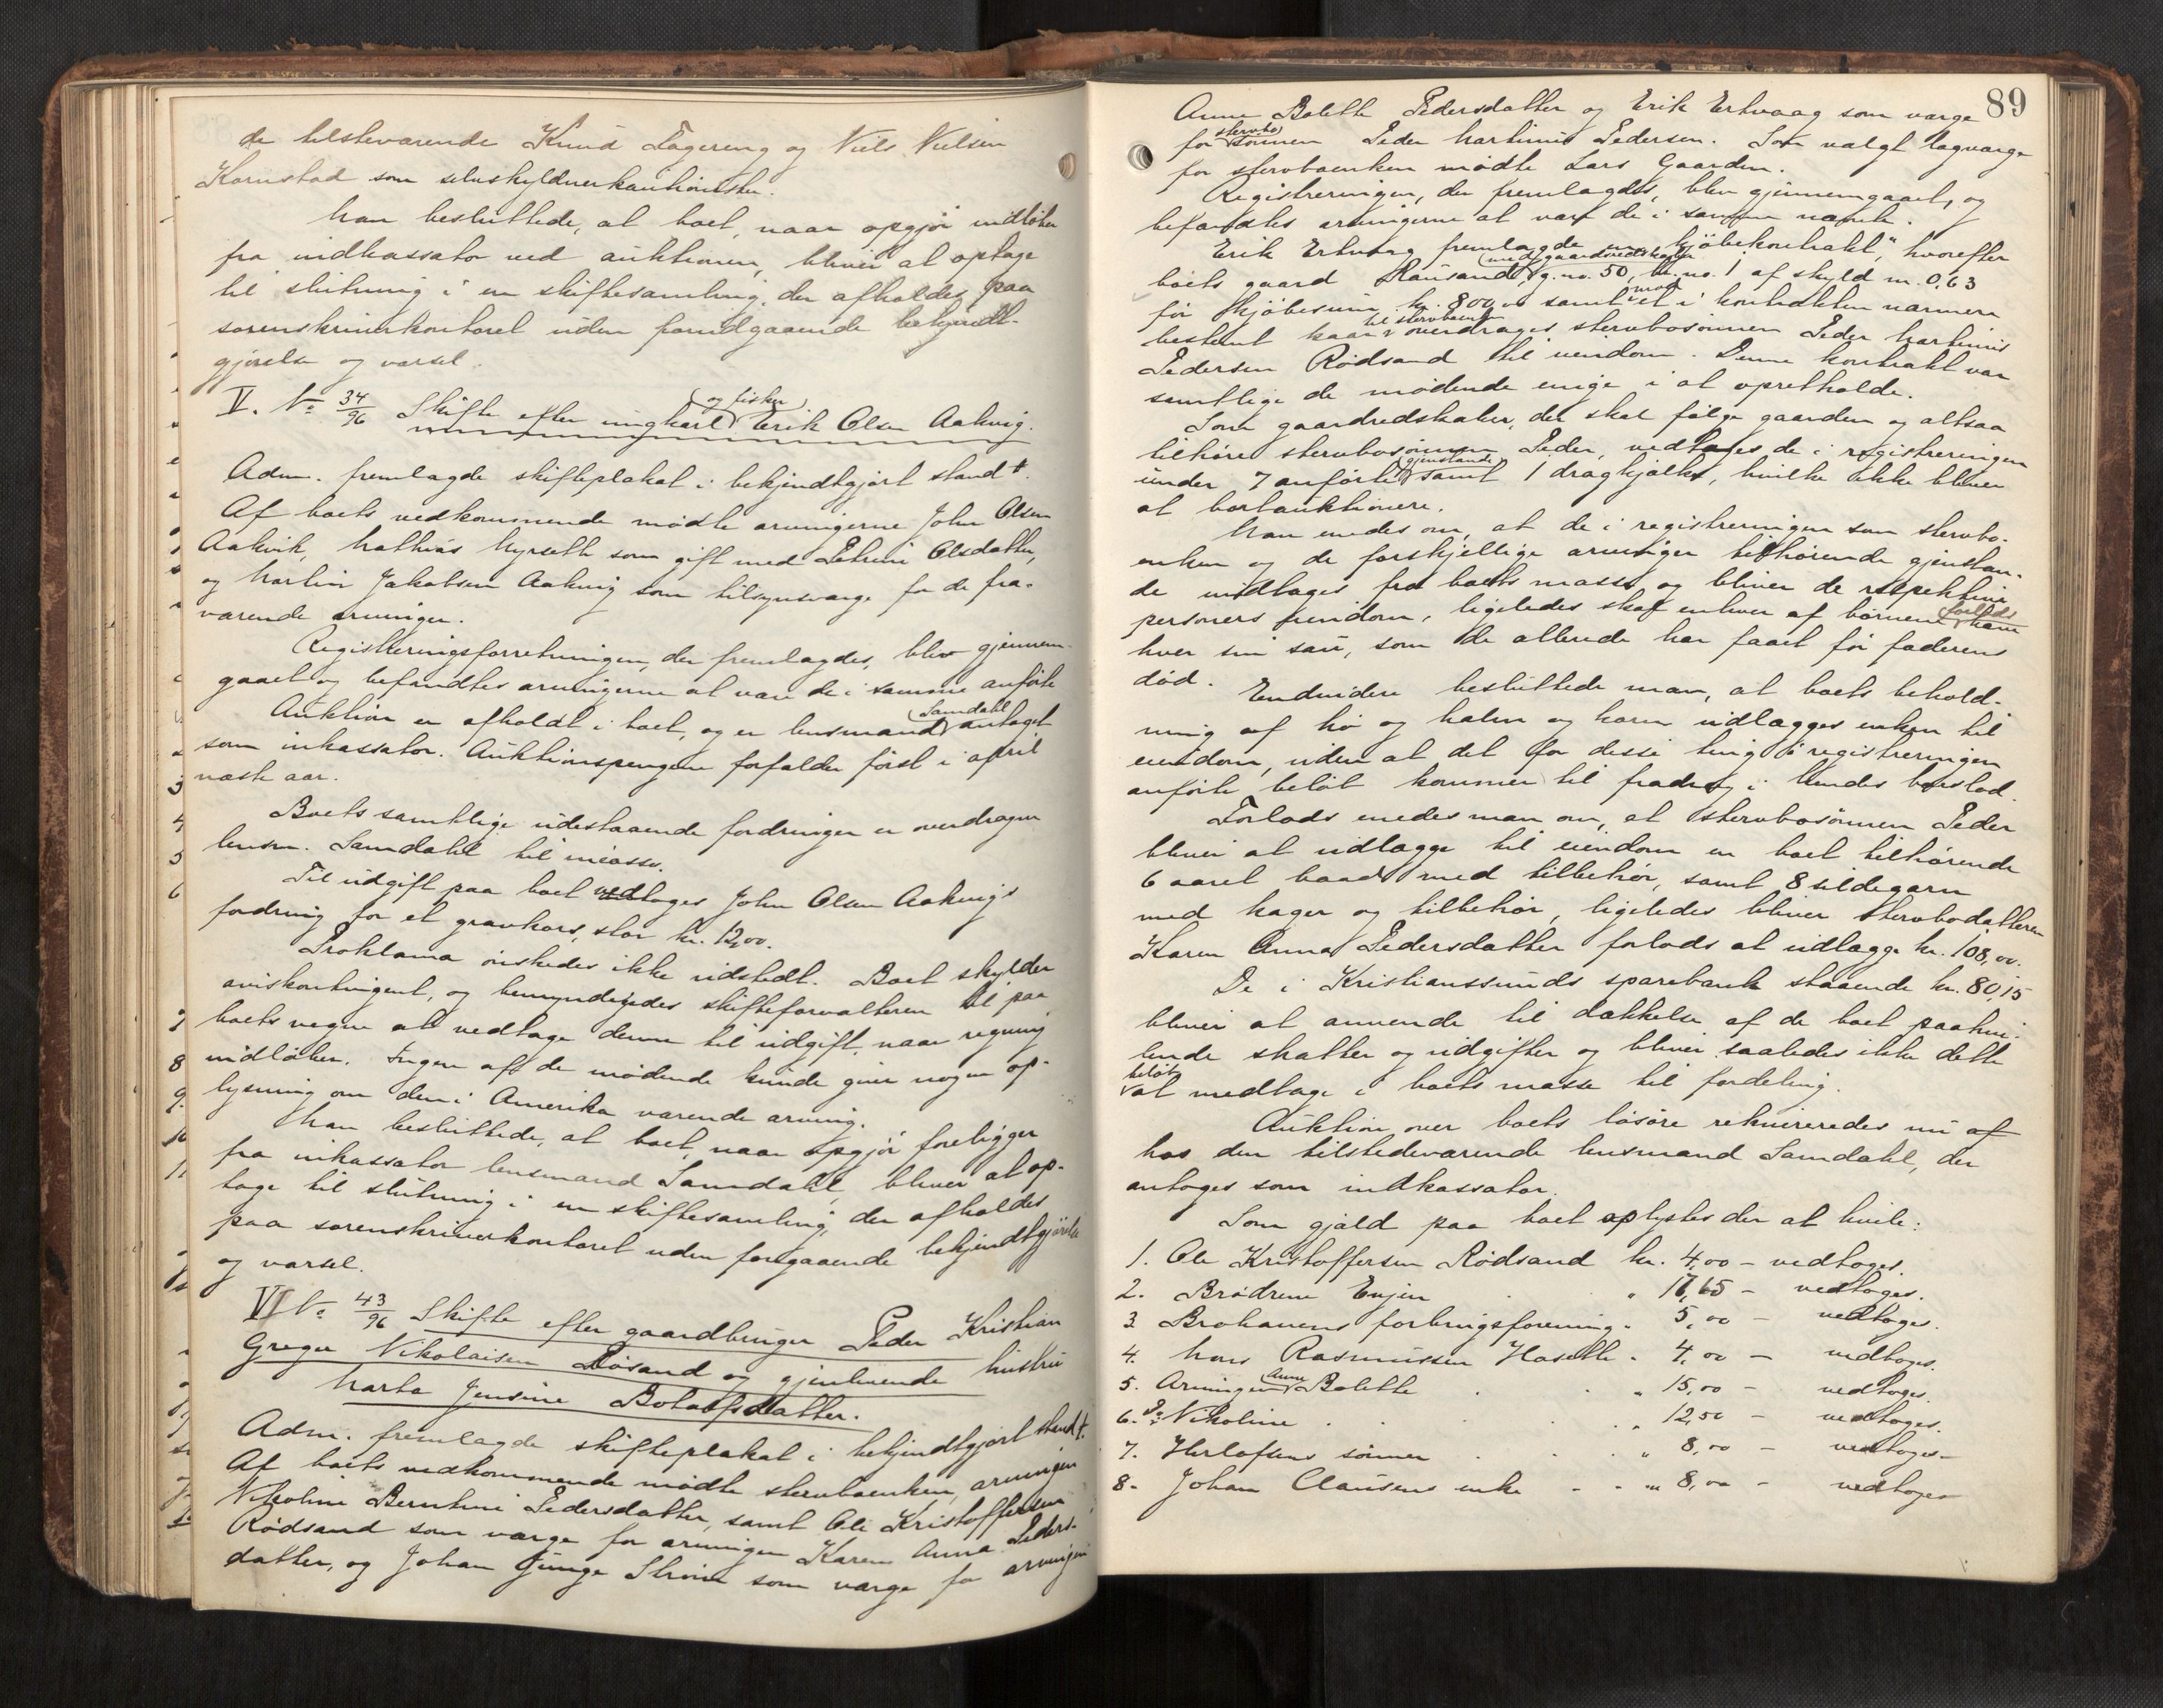 de tilsteværende Knud Fagereng og Niels Nielsen
Kornstad som selvskyldnerkautionister.
Man besluttede, at boet, naar opgjør indløber
fra indkassator ved auktionen, bliver at optage
til slutning i en skiftesamling, der afholdes paa
sorenskriverkontoret uden forudgaaende bekjendt-
gjørelse og varsel.
V. No 34/96 Skifte efter ungkarl (og fisker) Erik Olsen Aakvig.
Adm. fremlagde skifteplakat i bekjendtgjort stand +.
Af boets vedkommende mødte arvingerne John Olsen
Aakvik, Mathias Myrseth som gift med Petrine Olsdatter,
og Martin Jakobsen Aakvig som tilsynsværge for de fra-
værende arvinger.
Registreringsforretningen, der fremlagdes, blev gjennem-
gaaet og befandtes arvingerne at være de i samme anførte
Auktion er afholdt i boet, og er lensmand (Samdahl) antaget
som inkassator. Auktionspengene forfalder først i april
næste aar.
Boets samtlige udestaaende fordringer er overdragen
lensm. Samdahl til incasso.
Til udgift paa boet vedtoges John Olsen Aakvigs
fordring for et gravkors, stor kr. 12,00.
Proklama ønskedes ikke udstedt. Boet skylder
aviskontingent, og bemyndigedes skifteforvalteren til paa
boets vegne at vedtage denne til udgift, naar regning
indløber. Ingen af de mødende kunde give nogen op-
lysning om den i Amerika værende arving.
Man besluttede, at boet, naar opgjør foreligger
fra inkassator lensmand Samdahl, bliver at op-
tage til slutning i en skiftesamling, der afholdes
paa sorenskriverkontoret uden foregaaende bekjendtgjørelse
og varsel.
VI No 43/96 Skifte efter gaardbruger Peder Kristian
Greger Nikolaisen Rösand og gjenlevende hustru
Marta Jensine Botolfsdatter.
Adm. fremlagde skifteplakat i bekjendtgjort stand +.
Af boets vedkommende mødte stervboenken, arvingen
Nikoline Berntine Pedersdatter, samt Ole Kristoffersen
Rødsand som værge for arvingen Karen Anna Peders-
datter, og Johan Junge Strøm som værge for arvingen
89
Anne Bolette Pedersdatter og Erik Ertvaag som værge
for (stervbo) sønnen Peder Martinus Pedersen. Som valgt lagværge
for stervboenken mødte Lars Gaarden.
Registreringen, der fremlagdes, blev gjennemgaaet, og
befandtes arvingerne at være de i samme nævnte.
Erik Ertvaag fremlagde en "kjøbekontrakt", hvorefter
boets gaard Rausand (med gaardsredskaber), g.no. 50, br.no. 1 af skyld m. 0,63
for kjøbesum kr. 800,00 samt mod et i kontrakten nærmere
bestemt kaar til stervboenken overdrages stervbosønnen Peder Martinus
Pedersen Rødsand til eiendom. Denne kontrakt var
samtlige de mødende enige i at opretholde.
Som gaardredskaber, der skal følge gaarden og altsaa
tilhøre stervbosønnen Peder, vedtoges de i registreringen
under 7 anførte (gjenstande) samt 1 dragkjælke, hvilke ikke bliver
at bortauktionere.
Man enedes om, at de i registreringen som stervbo-
enken og de forskjellige arvinger tilhørende gjenstan-
de undtages fra boets masse og bliver de respektive
personers eiendom, ligeledes skal enhver af børnene (forlods) have
hver sin sau, som de allerede har faaet før faderens
død.
Endvidere besluttede man, at boets behold-
ning af hø og halm og korn udlægges enken til
eiendom, uden at det for disse ting i registreringen
anførte beløb kommer til fradrag i hendes boeslod.
Forlods enedes man om, at stervbosønnen Peder
bliver at udlægge til eiendom en boet tilhørende
6 aaret baad med tilbehør, samt 8 sildegarn
med kager og tilbehør, ligeledes bliver stervbodatteren
Karen Anna Pedersdatter forlods at udlægge kr. 108,00.
De i Kristianssunds sparebank staaende kr. 80,15
bliver at anvende til dækkelse af de boet paahvi-
lende skatter og udgifter og bliver saaledes ikke dette
beløb at medtage i boets masse til fordeling.
Auktion over boets løsøre rekvireredes nu af
hos den tilstedeværende lensmand Samdahl, der
antoges som indkassator.
Som gjæld paa boet oplystes der at hvile:
1. Ole Kristoffersen Rødsand kr. 4,00 – vedtoges.
2. Brødrene Enjen " 17,65 – vedtoges.
3. Brohavens forbrugsforening " 5,00 – vedtoges.
4. Hans Rasmussen Hoseth " 4,00 – vedtoges.
5. Arvingen (Anne) Bolette " 15,00 – vedtoges.
6. Do Nikoline " 12,50 – vedtoges.
7. Herlofsens sønner " 8,00 – vedtoges
8. Johan Clausens enke " 8,00 – vedtoges